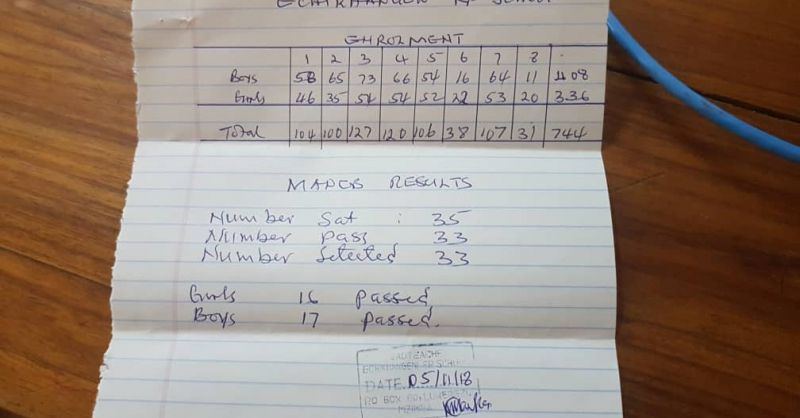 SCHOOL
ENROLMENT
1 2 3 4 5 6 7 8
Boys 58 65 73 66 54 16 64 11 408
Girls 46 35 54 54 52 22 53 20 336
Total 104 100 127 120 106 38 107 31 744
MANEB RESULTS
Number Sat : 35
Number pass 33
Number Selected 33
Girls 16 passed
Boys 17 passed.
DATE 05/11/18
PO BOX
MZIMBA